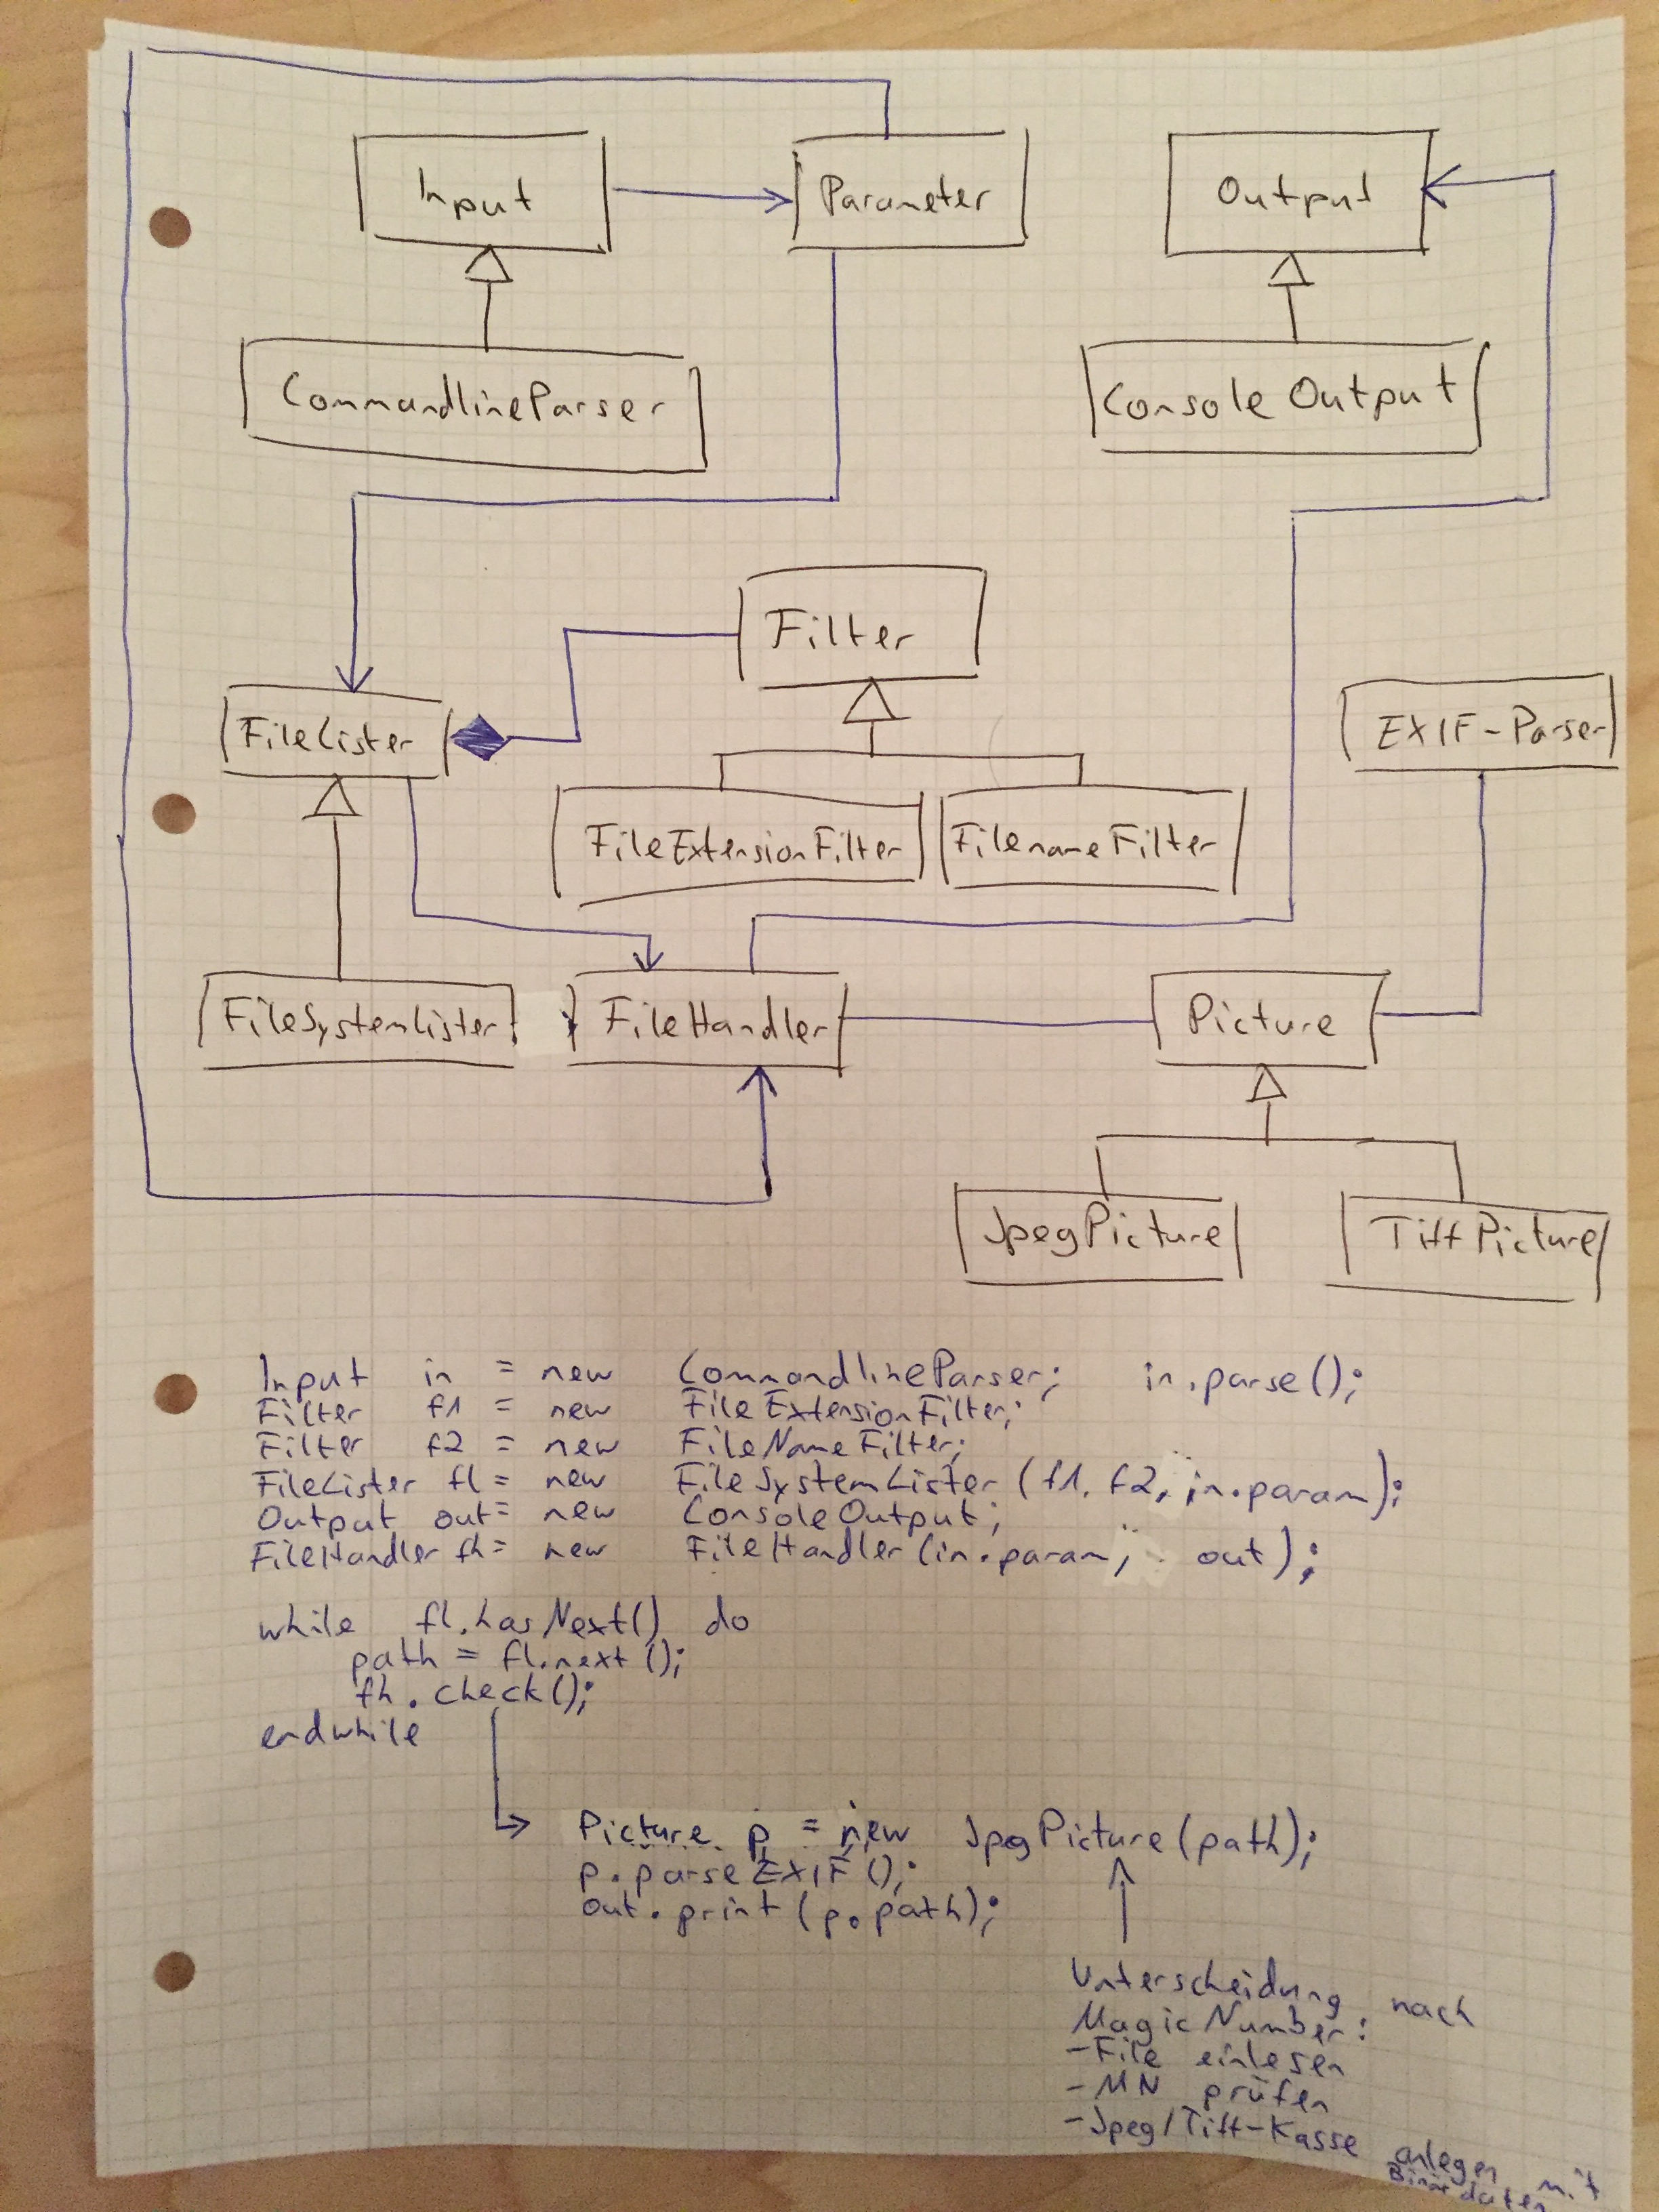 Input
Parameter
Output
CommandlineParser
Console Output
Filter
FileLister
EXIF-Parser
FileExtensionFilter
FilenameFilter
FileSystemLister
FileHandler
Picture
JpegPicture
TiffPicture
Input in = new CommandlineParser; in.parse();
Filter f1 = new FileExtensionFilter;
Filter f2 = new FileNameFilter;
FileLister fl = new FileSystemLister (f1, f2, in.param);
Output out = new ConsoleOutput;
FileHandler fh = new FileHandler (in.param, out);
while fl.hasNext() do
path = fl.next();
fh.check();
endwhile
Picture p = new JpegPicture(path);
p.parseEXIF();
out.print(p.path);
Unterscheidung nach
MagicNumber:
- File einlesen
- MN prüfen
- Jpeg/Tiff-Kasse anlegen mit
Binärdaten